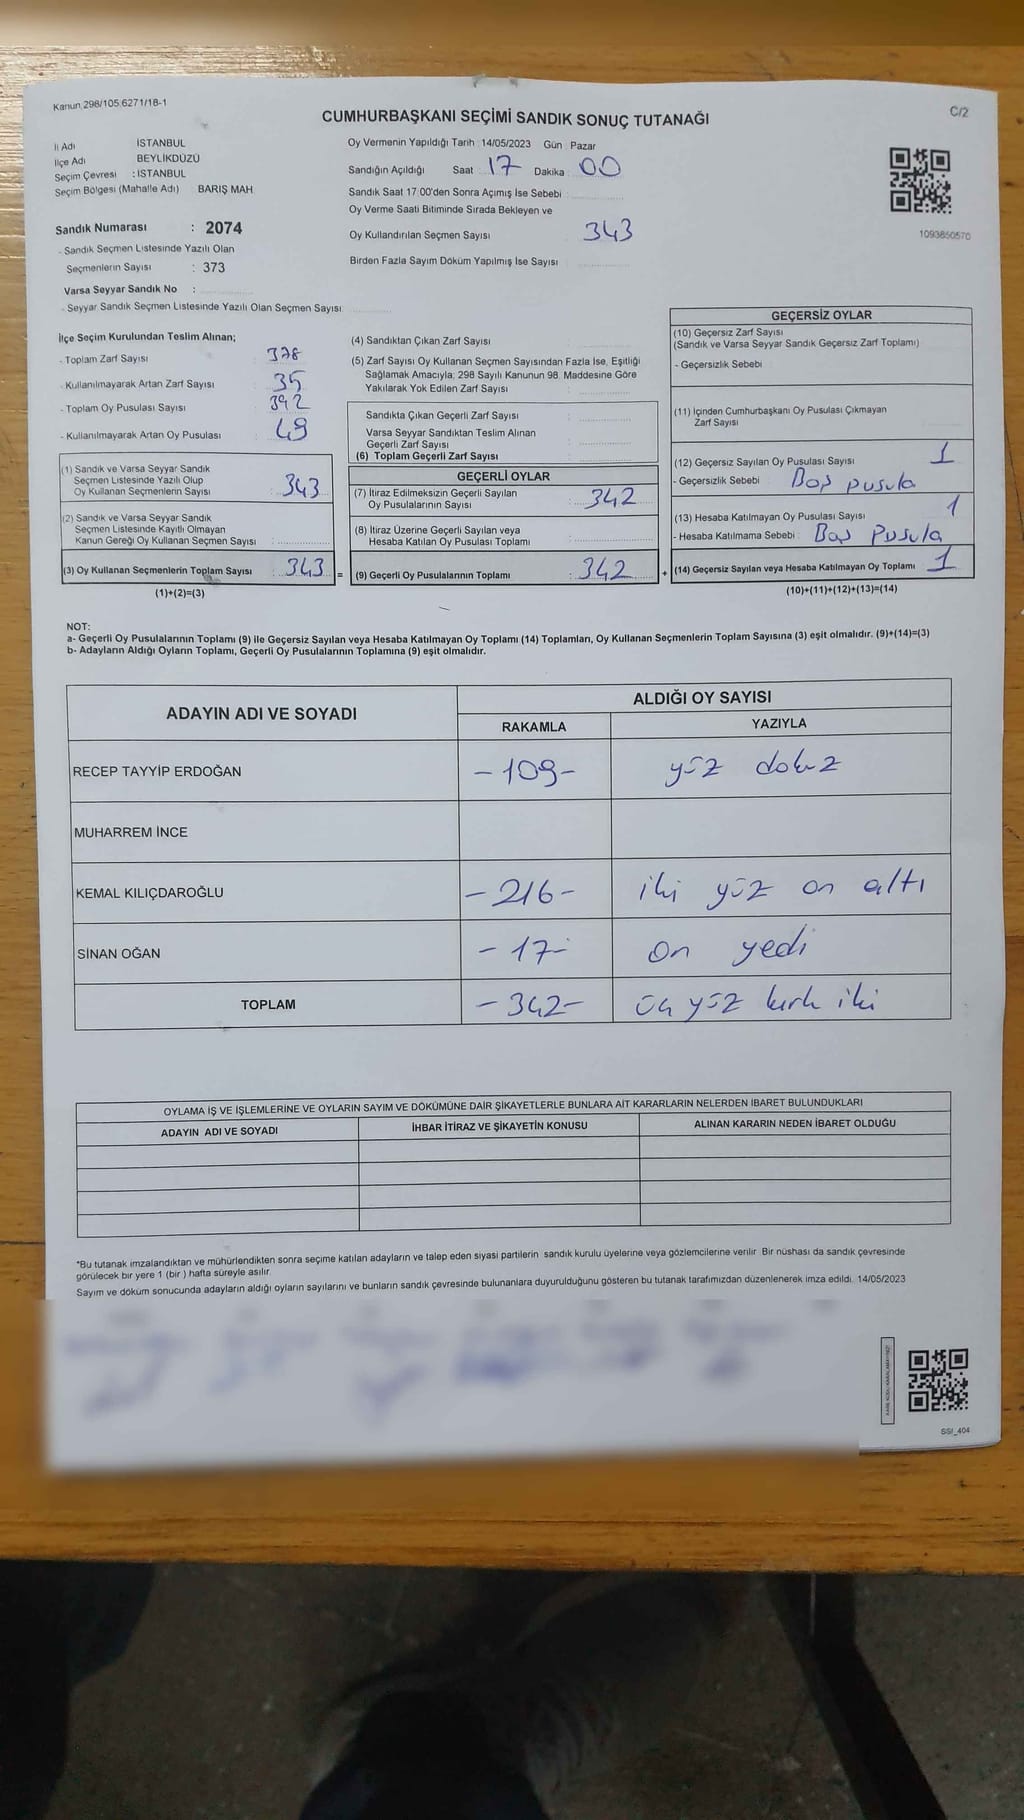 Kanun, 298/105,6271/18-1
CUMHURBAŞKANI SEÇİMİ SANDIK SONUÇ TUTANAĞI
C/2
İl Adı İSTANBUL
İlçe Adı BEYLİKDÜZÜ
Seçim Çevresi : İSTANBUL
Seçim Bölgesi (Mahalle Adı) BARIŞ MAH
Sandık Numarası : 2074
- Sandık Seçmen Listesinde Yazılı Olan
Seçmenlerin Sayısı : 373
Varsa Seyyar Sandık No :
- Seyyar Sandık Seçmen Listesinde Yazılı Olan Seçmen Sayısı
Oy Vermenin Yapıldığı Tarih : 14/05/2023 Gün : Pazar
Sandığın Açıldığı Saat : 17 Dakika : 00
Sandık Saat 17:00'den Sonra Açımış İse Sebebi
Oy Verme Saati Bitiminde Sırada Bekleyen ve
Oy Kullandırılan Seçmen Sayısı 343
Birden Fazla Sayım Döküm Yapılmış İse Sayısı
1093850570
İlçe Seçim Kurulundan Teslim Alınan;
- Toplam Zarf Sayısı 378
- Kullanılmayarak Artan Zarf Sayısı 35
- Toplam Oy Pusulası Sayısı 392
- Kullanılmayarak Artan Oy Pusulası 49
(1) Sandık ve Varsa Seyyar Sandık
Seçmen Listesinde Yazılı Olup
Oy Kullanan Seçmenlerin Sayısı : 343
(2) Sandık ve Varsa Seyyar Sandık
Seçmen Listesinde Kayıtlı Olmayan
Kanun Gereği Oy Kullanan Seçmen Sayısı :
(3) Oy Kullanan Seçmenlerin Toplam Sayısı : 343 =
(1)+(2)=(3)
(4) Sandıktan Çıkan Zarf Sayısı
(5) Zarf Sayısı Oy Kullanan Seçmen Sayısından Fazla İse, Eşitliği
Sağlamak Amacıyla; 298 Sayılı Kanunun 98. Maddesine Göre
Yakılarak Yok Edilen Zarf Sayısı
Sandıkta Çıkan Geçerli Zarf Sayısı
Varsa Seyyar Sandıktan Teslim Alınan
Geçerli Zarf Sayısı
(6) Toplam Geçerli Zarf Sayısı
GEÇERLİ OYLAR
(7) İtiraz Edilmeksizin Geçerli Sayılan
Oy Pusulalarının Sayısı : 342
(8) İtiraz Üzerine Geçerli Sayılan veya
Hesaba Katılan Oy Pusulası Toplamı
(9) Geçerli Oy Pusulalarının Toplamı : 342 +
GEÇERSİZ OYLAR
(10) Geçersiz Zarf Sayısı
(Sandık ve Varsa Seyyar Sandık Geçersiz Zarf Toplamı)
- Geçersizlik Sebebi
(11) İçinden Cumhurbaşkanı Oy Pusulası Çıkmayan
Zarf Sayısı
(12) Geçersiz Sayılan Oy Pusulası Sayısı 1
- Geçersizlik Sebebi Boş pusula
(13) Hesaba Katılmayan Oy Pusulası Sayısı 1
- Hesaba Katılmama Sebebi : Boş Pusula
(14) Geçersiz Sayılan veya Hesaba Katılmayan Oy Toplamı 1
(10)+(11)+(12)+(13)=(14)
NOT:
a- Geçerli Oy Pusulalarının Toplamı (9) ile Geçersiz Sayılan veya Hesaba Katılmayan Oy Toplamı (14) Toplamları, Oy Kullanan Seçmenlerin Toplam Sayısına (3) eşit olmalıdır. (9)+(14)=(3)
b- Adayların Aldığı Oyların Toplamı, Geçerli Oy Pusulalarının Toplamına (9) eşit olmalıdır.
ADAYIN ADI VE SOYADI ALDIĞI OY SAYISI
RAKAMLA YAZIYLA
RECEP TAYYİP ERDOĞAN -109- yüz dokuz
MUHARREM İNCE
KEMAL KILIÇDAROĞLU -216- iki yüz on altı
SİNAN OĞAN -17- on yedi
TOPLAM -342- üç yüz kırk iki
OYLAMA İŞ VE İŞLEMLERİNE VE OYLARIN SAYIM VE DÖKÜMÜNE DAİR ŞİKAYETLERLE BUNLARA AİT KARARLARIN NELERDEN İBARET BULUNDUKLARI
ADAYIN ADI VE SOYADI İHBAR İTİRAZ VE ŞİKAYETİN KONUSU ALINAN KARARIN NEDEN İBARET OLDUĞU
*Bu tutanak imzalandıktan ve mühürlendikten sonra seçime katılan adayların ve talep eden siyasi partilerin sandık kurulu üyelerine veya gözlemcilerine verilir. Bir nüshası da sandık çevresinde
görülecek bir yere 1 (bir ) hafta süreyle asılır.
Sayım ve döküm sonucunda adayların aldığı oyların sayılarını ve bunların sandık çevresinde bulunanlara duyurulduğunu gösteren bu tutanak tarafımızdan düzenlenerek imza edildi. 14/05/2023
SSI_404